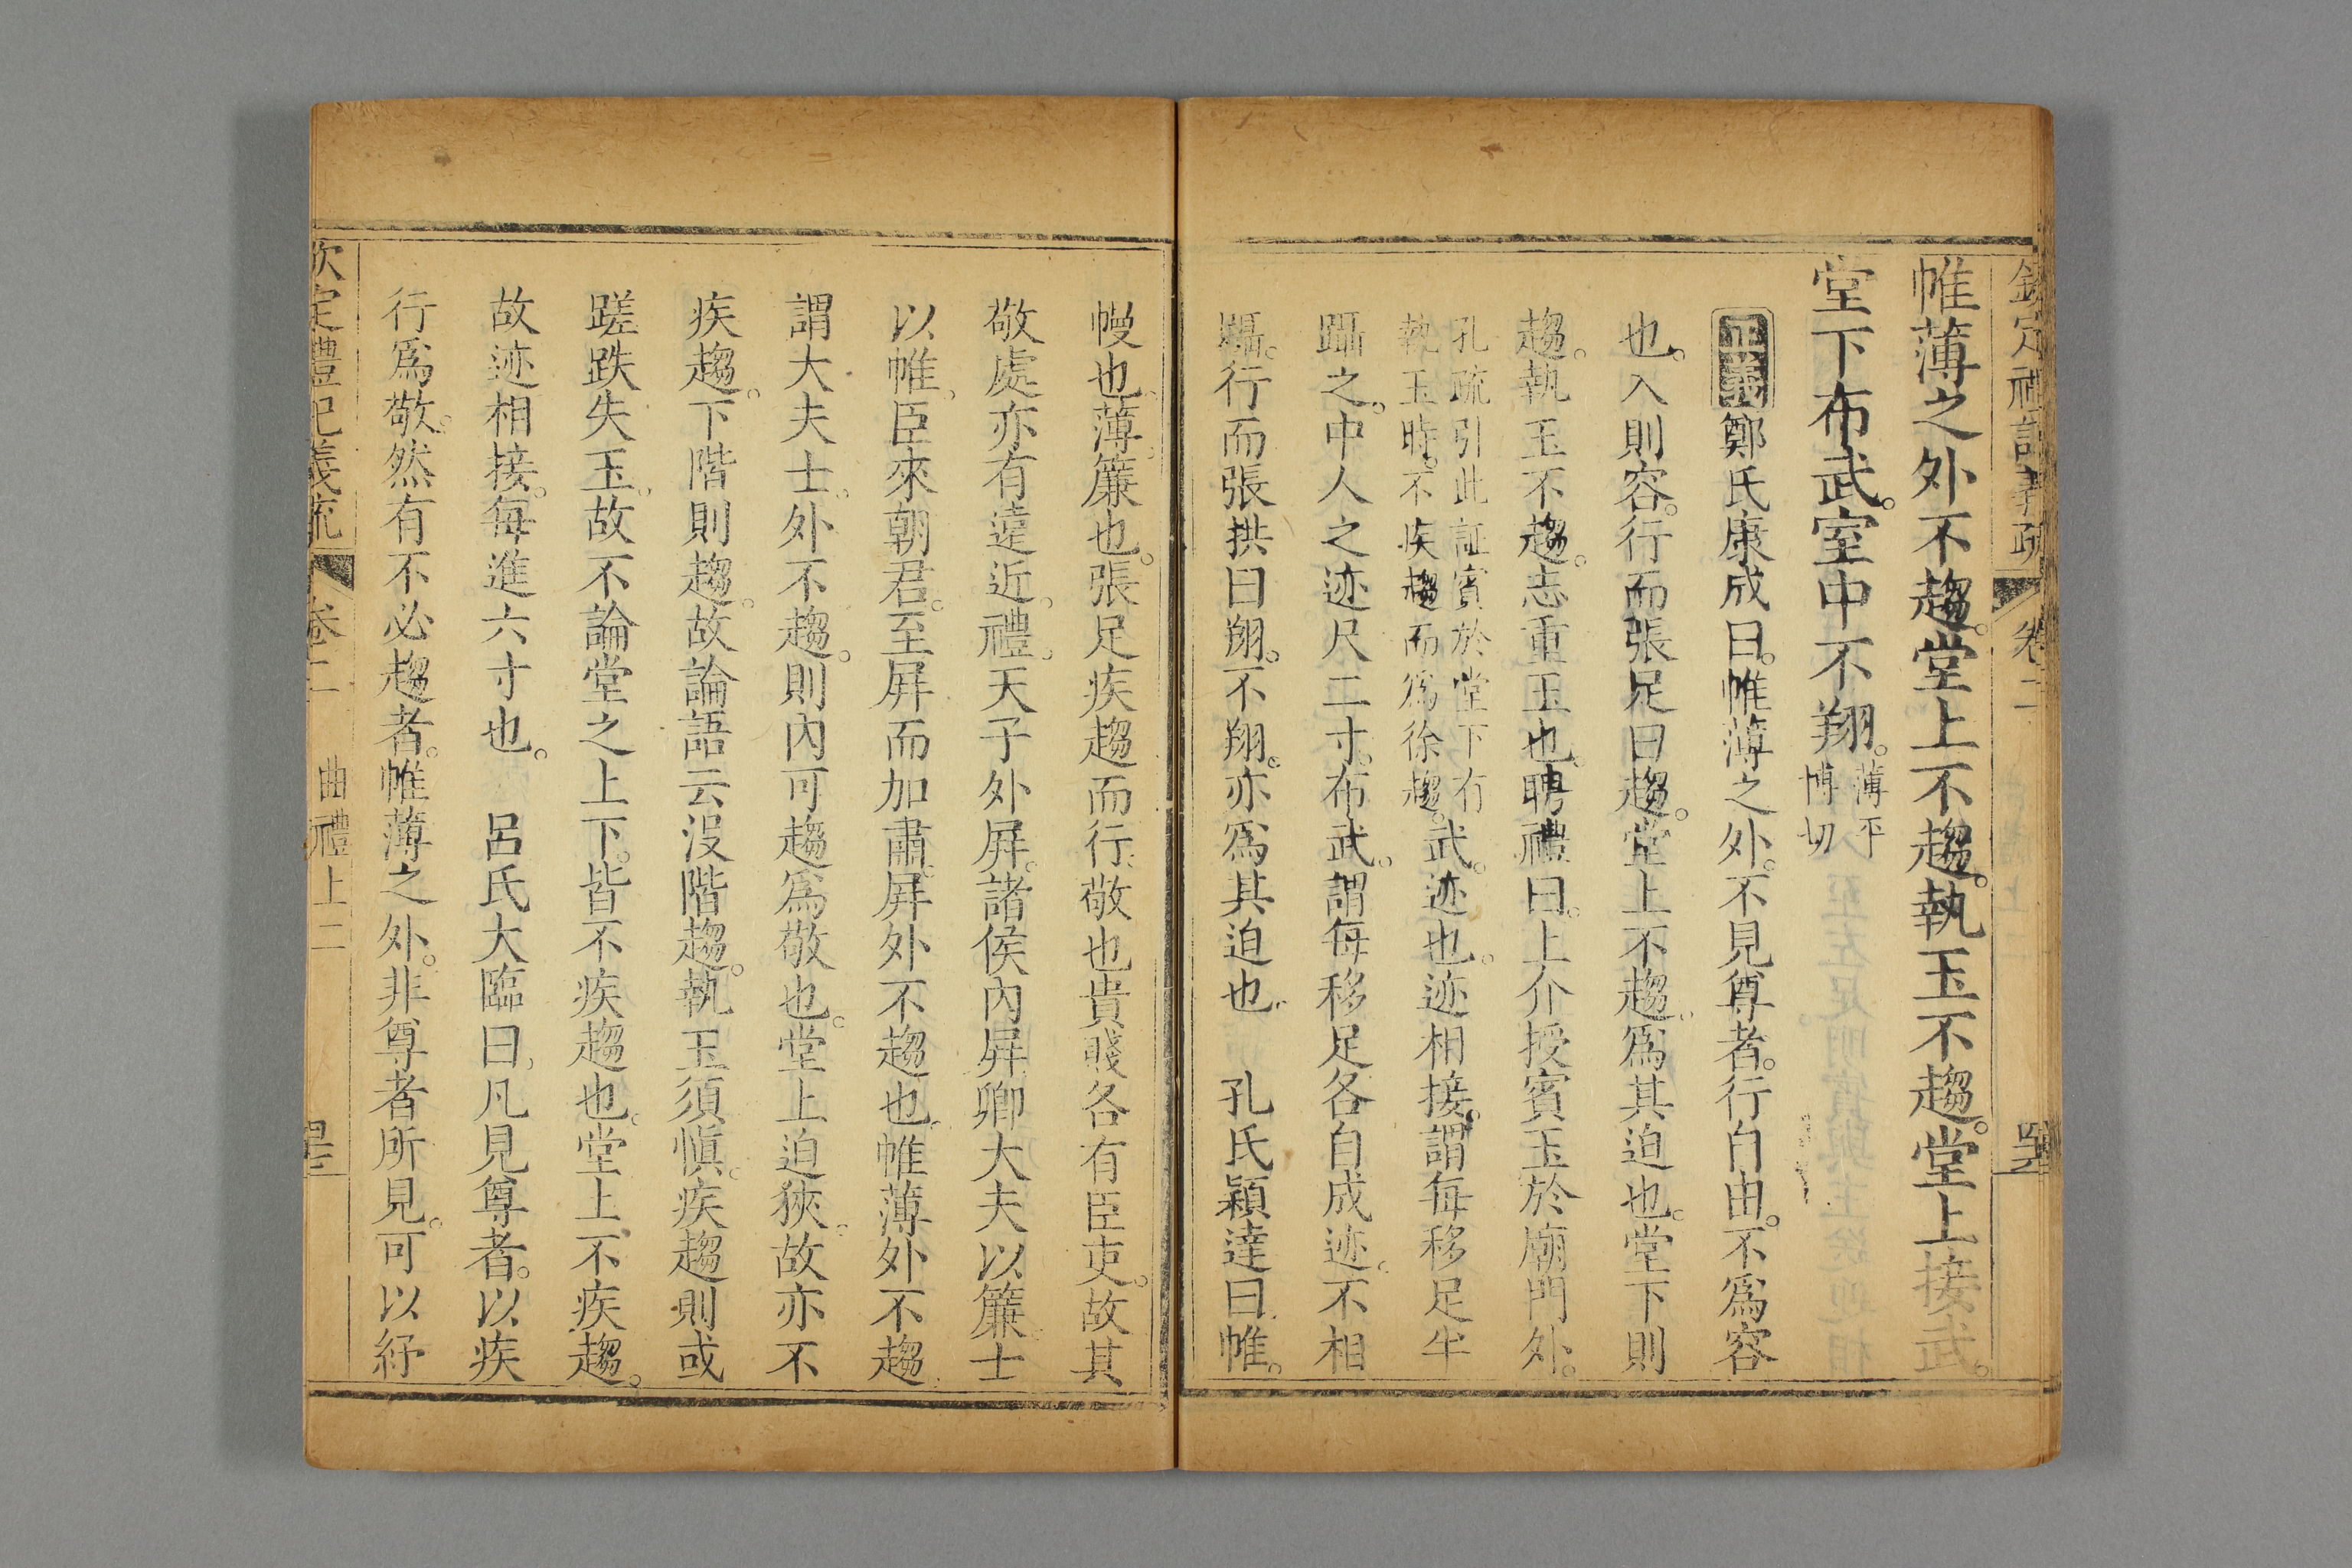 欽定禮記義疏 卷二
帷薄之外不趨。堂上不趨。執玉不趨。堂上接武。
堂下布武。室中不翔。薄平
博切
正義鄭氏康成曰。帷薄之外。不見尊者。行自由。不爲容
也。入則容。行而張足曰趨。堂上不趨。爲其迫也。堂下則
趨。執玉不趨。志重玉也。聘禮曰。上介授賓玉於廟門外。
孔疏引此証賓於堂下有
執玉時。不疾趨而爲徐趨。武。迹也。迹相接。謂每移足半
躡之。中人之迹尺二寸。布武。謂每移足各自成迹。不相
躡。行而張拱曰翔。不翔。亦爲其迫也 孔氏穎達曰。帷。
幔也。薄。簾也。張足疾趨而行。敬也。貴賤各有臣吏。故其
敬處亦有遠近。禮。天子外屏。諸侯內屏。卿大夫以簾。士
以帷。臣來朝君。至屏而加肅。屏外不趨也。帷薄外不趨
謂大夫士。外不趨。則內可趨爲敬也。堂上迫狹。故亦不
疾趨。下階則趨。故論語云沒階趨。執玉須愼。疾趨則或
蹉跌失玉。故不論堂之上下。皆不疾趨也。堂上不疾趨。
故迹相接。每進六寸也。 呂氏大臨曰。凡見尊者。以疾
行爲敬。然有不必趨者。帷薄之外。非尊者所見。可以紓
欽定禮記義疏 卷二 曲禮上二